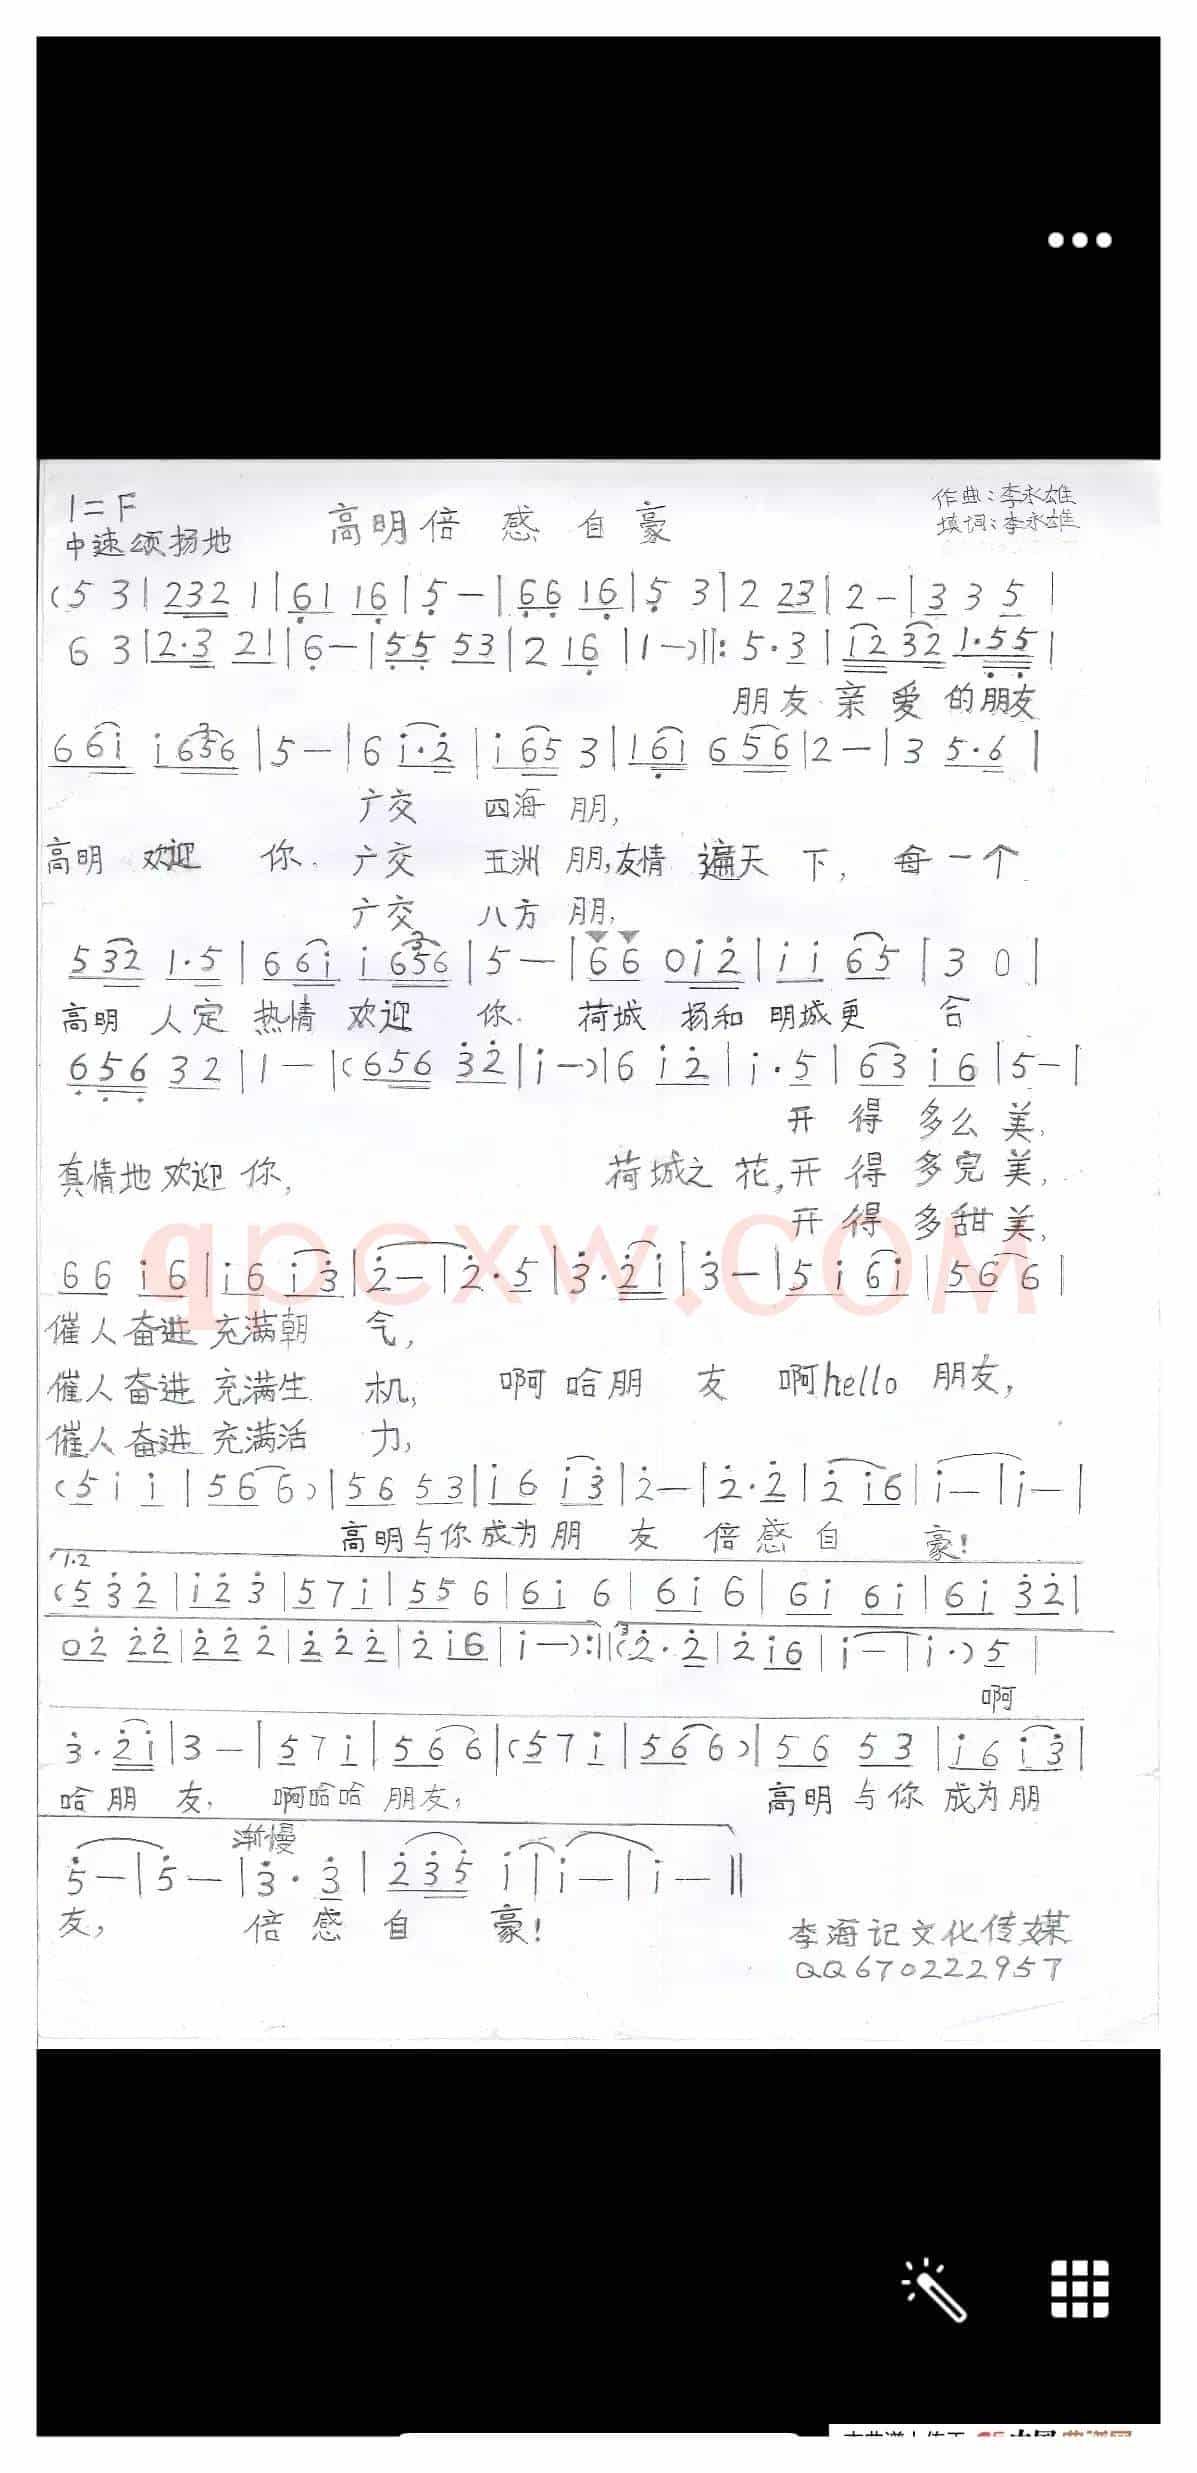 1=F
中速颂扬地
高明倍感自豪
作曲:李永雄
填词:李永雄
(5 3|2321|61 16|5-|66 16|5 3|2 23|2-|3 3 5|
6 3|2·3 21|6-|55 53|2 16|1-)‖:5·3|12 32 1·55|
朋友 亲爱的朋友
66i i656|5-|6 i·2|i65 3|16i 656|2-|3 5·6|
广交 四海 朋,
高明 欢迎 你. 广交 五洲 朋,友情 遍天 下, 每一个
广交 八方 朋,
532 1·5|66i i656|5-|66 0i2|ii 65|3 0|
高明 人定 热情 欢迎 你. 荷城 扬和 明城更 合
656 32|1-|(656 32|i-)|6 i2|i·5|63 i6|5-|
开 得 多么 美,
真情地欢迎你, 荷城之 花,开 得 多完 美,
开 得 多甜 美,
66 i6|i6 i3|2-|2·5|3·2i|3-|5 i 6i|566|
催人奋进 充满朝 气,
催人奋进 充满生 机, 啊哈朋 友 啊hello 朋友,
催人奋进 充满活 力,
(5ii|566)|56 53|i6 i3|2-|2·2|2i6|i-|i-|
高明与你成为朋 友 倍感自 豪!
1.2
(532|i23|57i|556|6i6|6i6|6i 6i|6i 32|
02 22|222|222|2i6|i-):‖3(2·2|2i6|i-|i·)5|
啊
3·2i|3-|57i|566|(57i|566)|56 53|i6 i3|
哈朋 友, 啊哈哈 朋友, 高明 与你 成为朋
渐慢
5-|5-|3·3|235 i|i-|i-‖
友, 倍感自 豪!
李海记文化传媒
QQ670222957
qpcxw.com